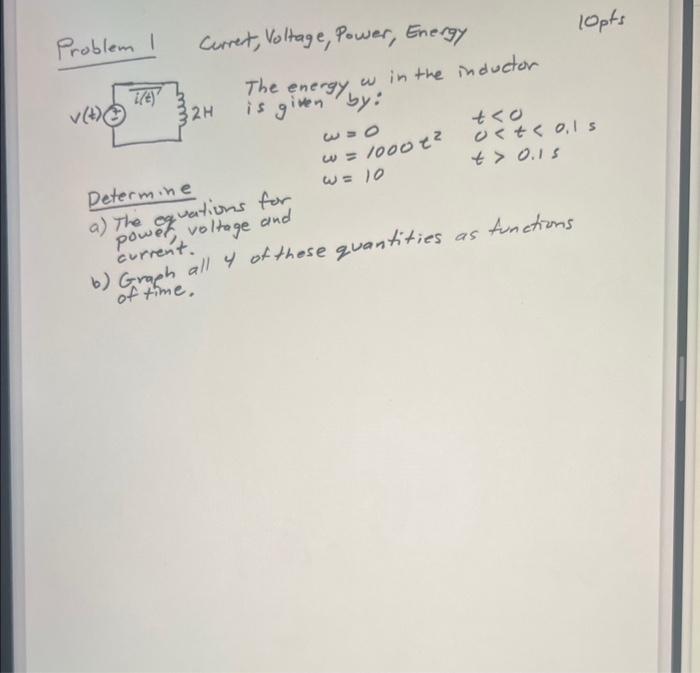 Problem 1 Curret, Voltage, Power, Energy 10pts
The energy w in the inductor
is given by:
v(t) i(t) 2H
w = 0 t < 0
w = 1000 t² 0 < t < 0.1 s
w = 10 t > 0.1 s
Determine
a) The equations for
power, voltage and
current.
b) Graph all 4 of these quantities as functions
of time.